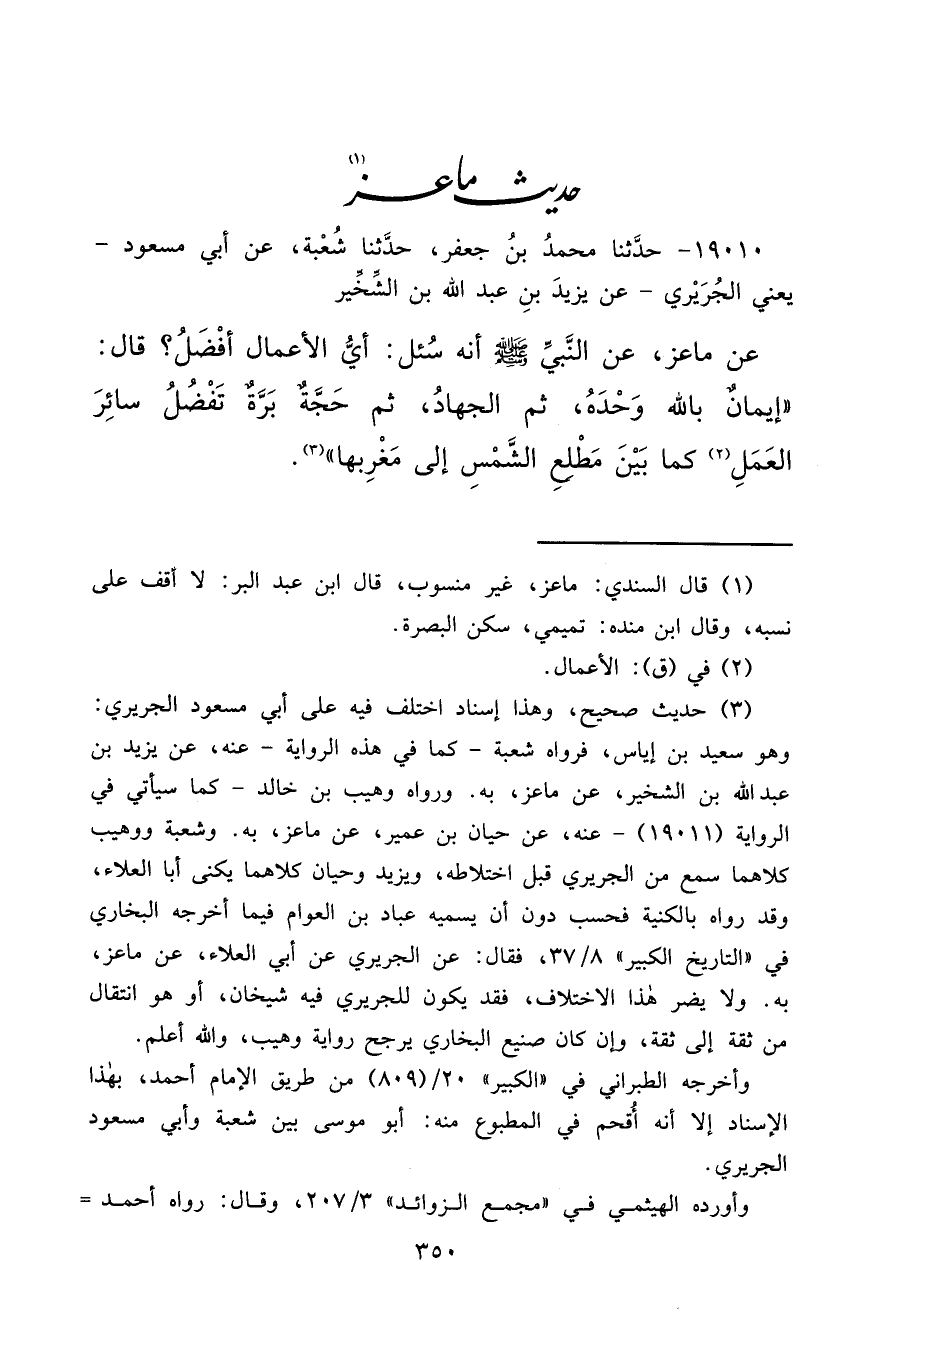 حديث ماعز(١)
١٩٠١٠- حدَّثنا محمدُ بنُ جعفر، حدَّثنا شُعْبة، عن أبي مسعود -
يعني الجُرَيْري - عن يزيدَ بنِ عبد الله بن الشِّخِّير
عن ماعز، عن النَّبيِّ ﷺ أنه سُئل: أيُّ الأعمال أفْضَلُ؟ قال:
«إيمانٌ بالله وَحْدَهُ، ثم الجهادُ، ثم حَجَّةٌ بَرَّةٌ تَفْضُلُ سائِرَ
العَمَلِ(٢) كما بَيْنَ مَطْلِعِ الشَّمْسِ إلى مَغْرِبها»(٣).
(١) قال السندي: ماعز، غير منسوب، قال ابن عبد البر: لا أقف على
نسبه، وقال ابن منده: تميمي، سكن البصرة.
(٢) في (ق): الأعمال.
(٣) حديث صحيح، وهذا إسناد اختلف فيه على أبي مسعود الجريري:
وهو سعيد بن إياس، فرواه شعبة - كما في هذه الرواية - عنه، عن يزيد بن
عبدالله بن الشخير، عن ماعز، به. ورواه وهيب بن خالد - كما سيأتي في
الرواية (١٩٠١١) - عنه، عن حيان بن عمير، عن ماعز، به. وشعبة ووهيب
كلاهما سمع من الجريري قبل اختلاطه، ويزيد وحيان كلاهما يكنى أبا العلاء،
وقد رواه بالكنية فحسب دون أن يسميه عباد بن العوام فيما أخرجه البخاري
في «التاريخ الكبير» ٣٧/٨، فقال: عن الجريري عن أبي العلاء، عن ماعز،
به. ولا يضر هٰذا الاختلاف، فقد يكون للجريري فيه شيخان، أو هو انتقال
من ثقة إلى ثقة، وإن كان صنيع البخاري يرجح رواية وهيب، والله أعلم.
وأخرجه الطبراني في «الكبير» ٢٠/(٨٠٩) من طريق الإمام أحمد، بهٰذا
الإسناد إلا أنه أُقحم في المطبوع منه: أبو موسى بين شعبة وأبي مسعود
الجريري.
وأورده الهيثمي في «مجمع الزوائد» ٢٠٧/٣، وقال: رواه أحمد =
٣٥٠